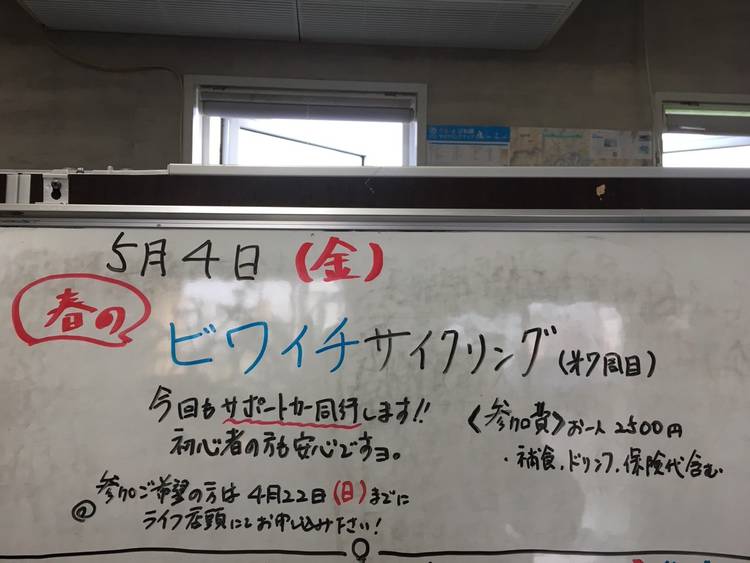 5月4日(金)
春の
ビワイチサイクリング(約7周目)
今回もサポートカー同行します!!
初心者の方も安心ですヨ。
〈参加費〉お一人 2500円
・補食、ドリンク、保険代含む
@参加ご希望の方は 4月22日(日)までに
ライフ店頭にてお申し込み下さい!